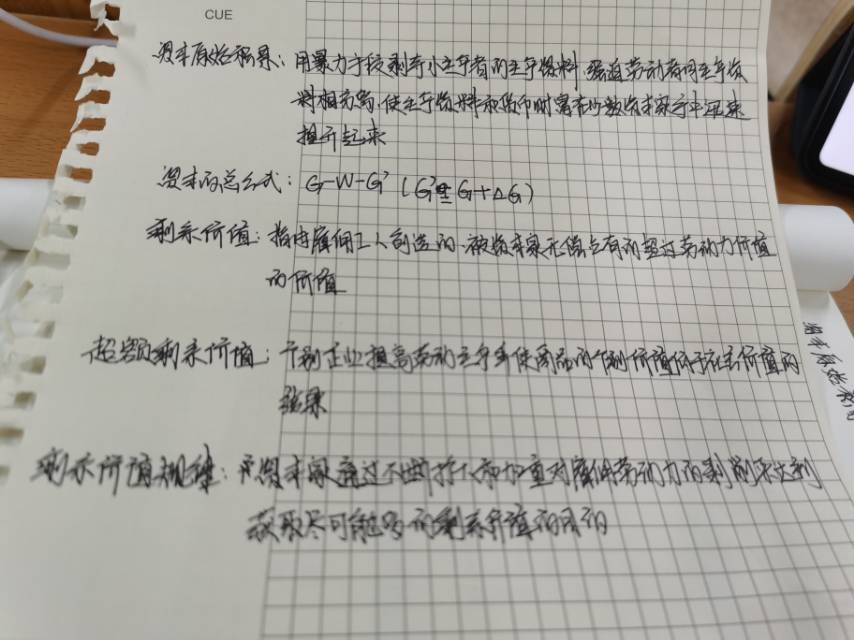 CUE
资本原始积累：用暴力手段剥夺小生产者的生产资料，强迫劳动者同生产资
料相分离，使生产资料和货币财富在少数资本家手中迅速
积开起来
资本的总公式：G-W-G' (G'是G+△G)
剩余价值：指由雇佣工人创造的、被资本家无偿占有的超过劳动力价值
的价值
超额剩余价值：个别企业提高劳动生产率使商品的个别价值低于社会价值的
结果
剩余价值规律：资本家通过不断扩大和加重对雇佣劳动力的剥削来达到
获取尽可能多的剩余价值的目的
资本原始